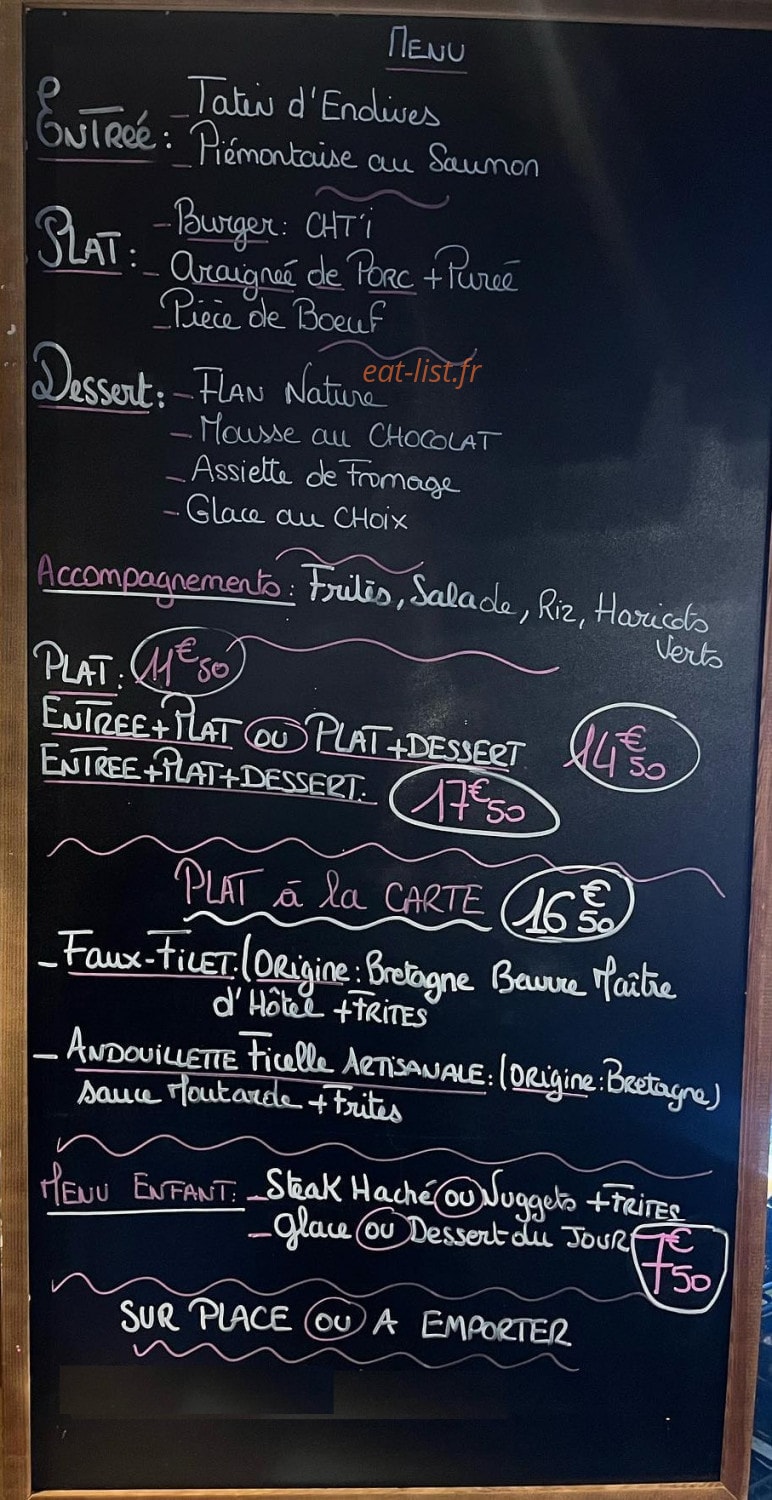 MENU
ENTREÉ: - Tatin d'Endives
- Piémontaise au Saumon
PLAT: - Burger: CHT'i
- Araigneé de PORC + Pureé
- Pièce de Boeuf
eat-list.fr
Dessert: - FLAN Nature
- Mousse au CHOCOLAT
- Assiette de Fromage
- Glace au CHOIX
Accompagnements: Frites, Salade, Riz, Haricots
Verts
PLAT: 11€50
ENTREE+PLAT OU PLAT+DESSERT 14€50
ENTREE+PLAT+DESSERT: 17€50
PLAT à la CARTE 16€50
- FAUX-FILET: (ORIgine: Bretagne Beurre Maître
d'Hôtel + FRITES
- ANDOUILLETTE Ficelle ARTISANALE: (ORIgine: Bretagne)
sauce Moutarde + Frites
MENU ENFANT: - Steak Haché OU Nuggets + FRITES
- Glace OU Dessert du JOUR 7€50
SUR PLACE OU A EMPORTER